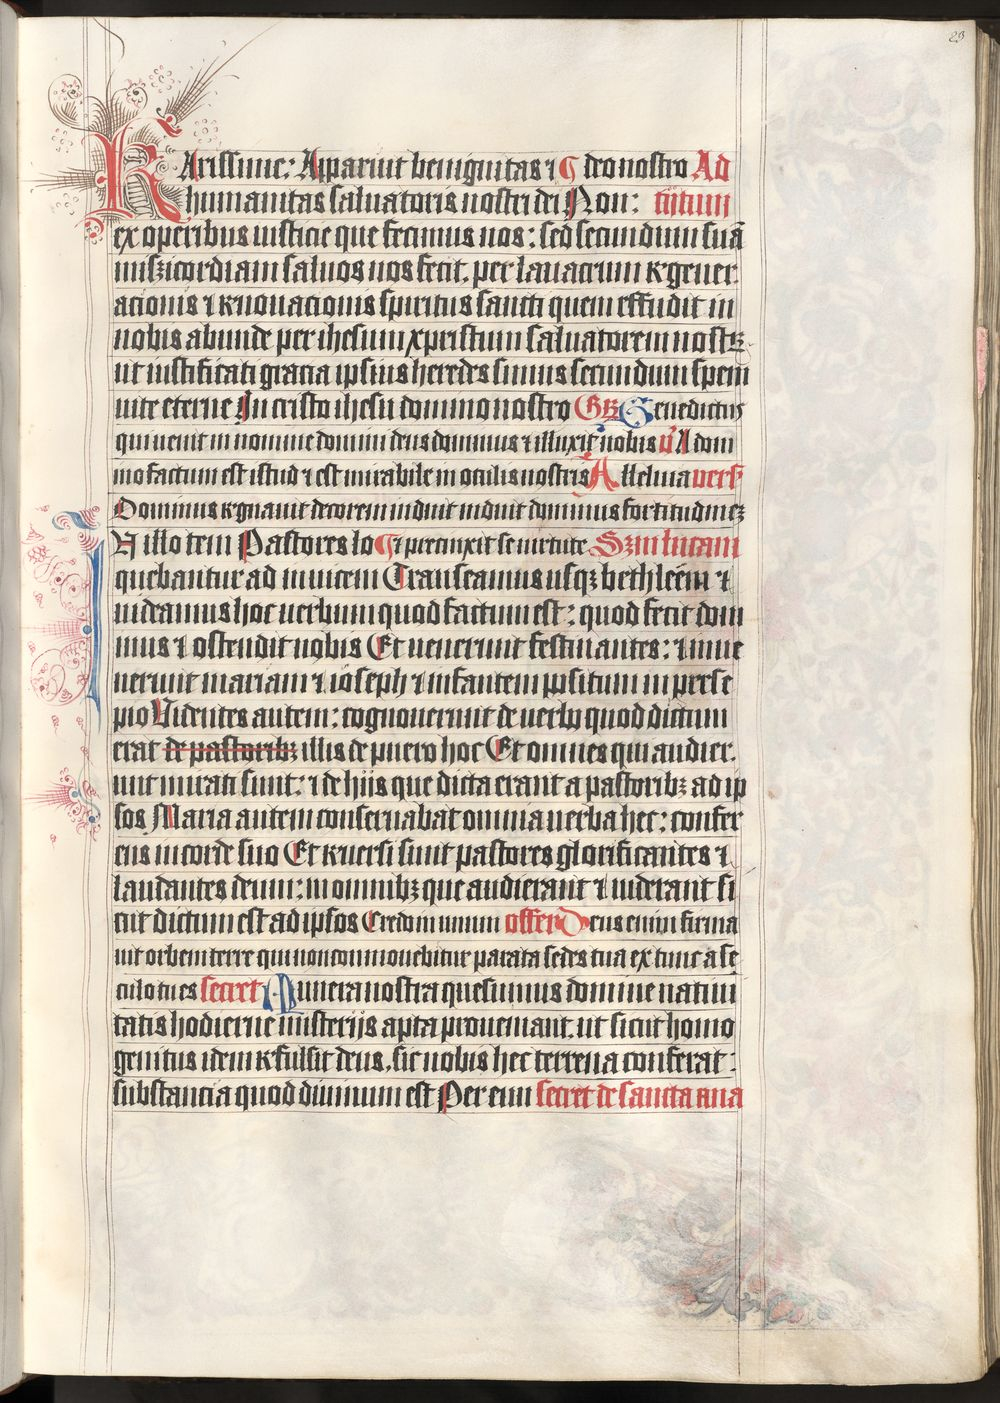 29
KArissime: Apparuit benignitas ⁊ ¶ deo nostro Ad
humanitas saluatoris nostri dei Non: tijtum
ex operibus iusticie que fecimus nos: sed secundum suā
misericordiam saluos nos fecit. per lauacrum regener
acionis ⁊ renouacionis spiritus sancti quem effudit in
nobis abunde per ihesum xpristum saluatorem nostrꝫ
ut iustificati gracia ipsius heredes simus secundum spem
uite eterne In cristo ihesu domino nostro Grꝫ Benedictus
qui uenit in nomine domini deus dominus ⁊ illuxit nobis v̄ A dom
ino factum est istud ⁊ est mirabile in oculis nostris Alleluia vers
Dominus regnauit decorem induit induit dominus fortitudinēꝫ
IN illo tem Pastores lo ¶ ⁊ precinxit se uirtute Scdm lucam
quebantur ad inuicem Transeamus usqꝫ bethleem ⁊
uideamus hoc uerbum quod factum est: quod fecit dom
inus ⁊ ostendit nobis Et uenerunt festinantes: ⁊ inue
nerunt mariam ⁊ ioseph ⁊ infantem positum in prese
pio Videntes autem: cognouerunt de uerbo quod dictum
erat de pastoribꝫ illis de puero hoc Et omnes qui audier.
unt mirati sunt: ⁊ de hijs que dicta erant a pastoribꝫ ad ip
sos Maria autem conseruabat omnia uerba hec: confer
ens in corde suo Et reuersi sunt pastores glorificantes ⁊
laudantes deum: in omnibꝫ que audierant ⁊ uiderant si
cut dictum est ad ipsos Credo in unum offer Deus enim firma
uit orbem terre qui non commouebitur parata sedes tua ex tunc a se
culo tu es secret Munera nostra quesumus domine natiui
tatis hodierne misterijs apta proueniant. ut sicut homo
genitus idem refulsit deus. sic nobis hec terrena conferat:
substancia quod diuinum est Per eun secret de sancta ana